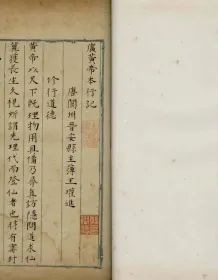 廣黃帝本行記
唐閬州晉安縣主簿王瓘進
修行道德
黃帝以天下既理物用具備乃尋真訪隱問道求仙
冀獲長生久視所謂先理代而登仙者也時有甯封